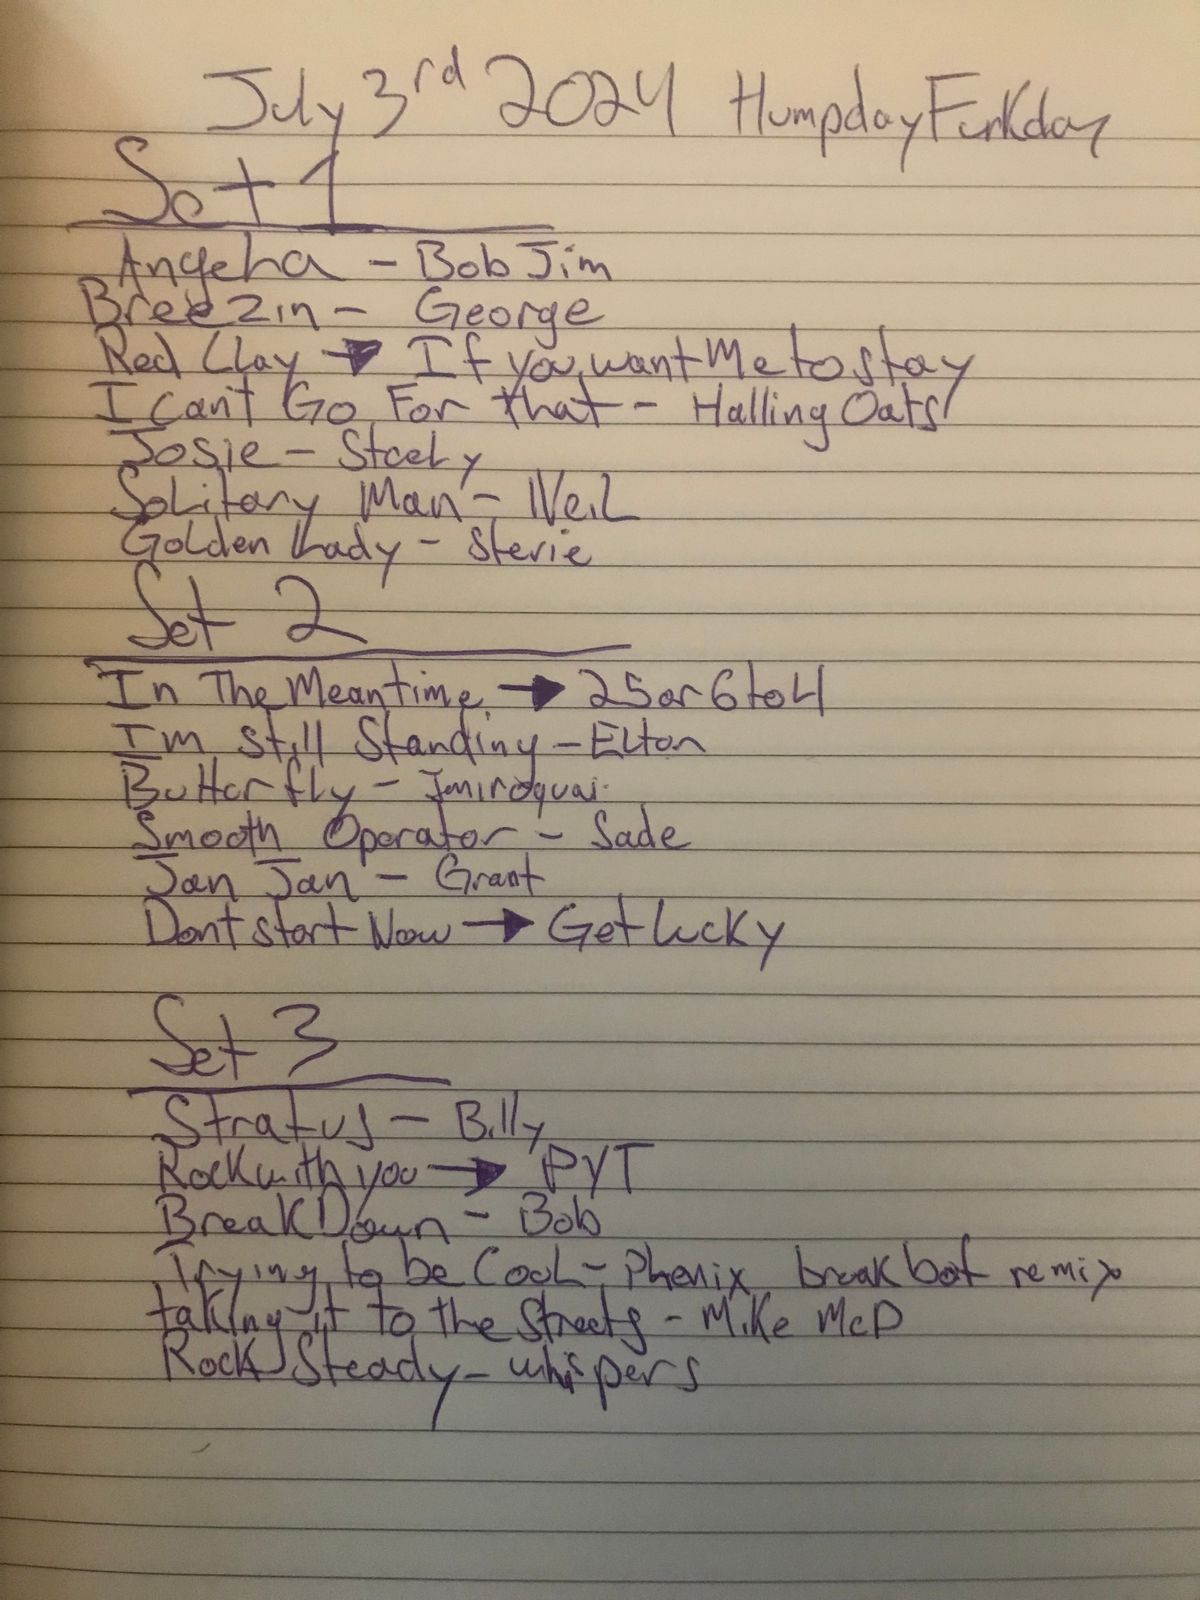 July 3rd 2024 Humpday Funkday
Set 1
Angela - Bob Jim
Breezin - George
Red Clay → If you want Me to stay
I can't Go For that - Halling Oats
Josie - Steely
Solitary Man - Neil
Golden Lady - Stevie
Set 2
In The Meantime → 25 or 6 to 4
I'm Still Standing - Elton
Butterfly - Jmiroquai
Smooth Operator - Sade
Jan Jan - Grant
Dont start Now → Get lucky
Set 3
Stratus - Billy
Rock with you → PYT
Break Down - Bob
Trying to be Cool - Phenix breakbot remix
taking it to the Streets - Mike McD
Rock Steady - whispers